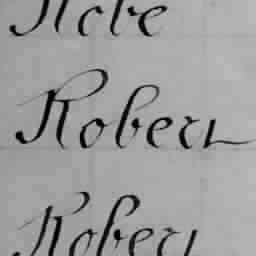 Robe
Robert
Robert